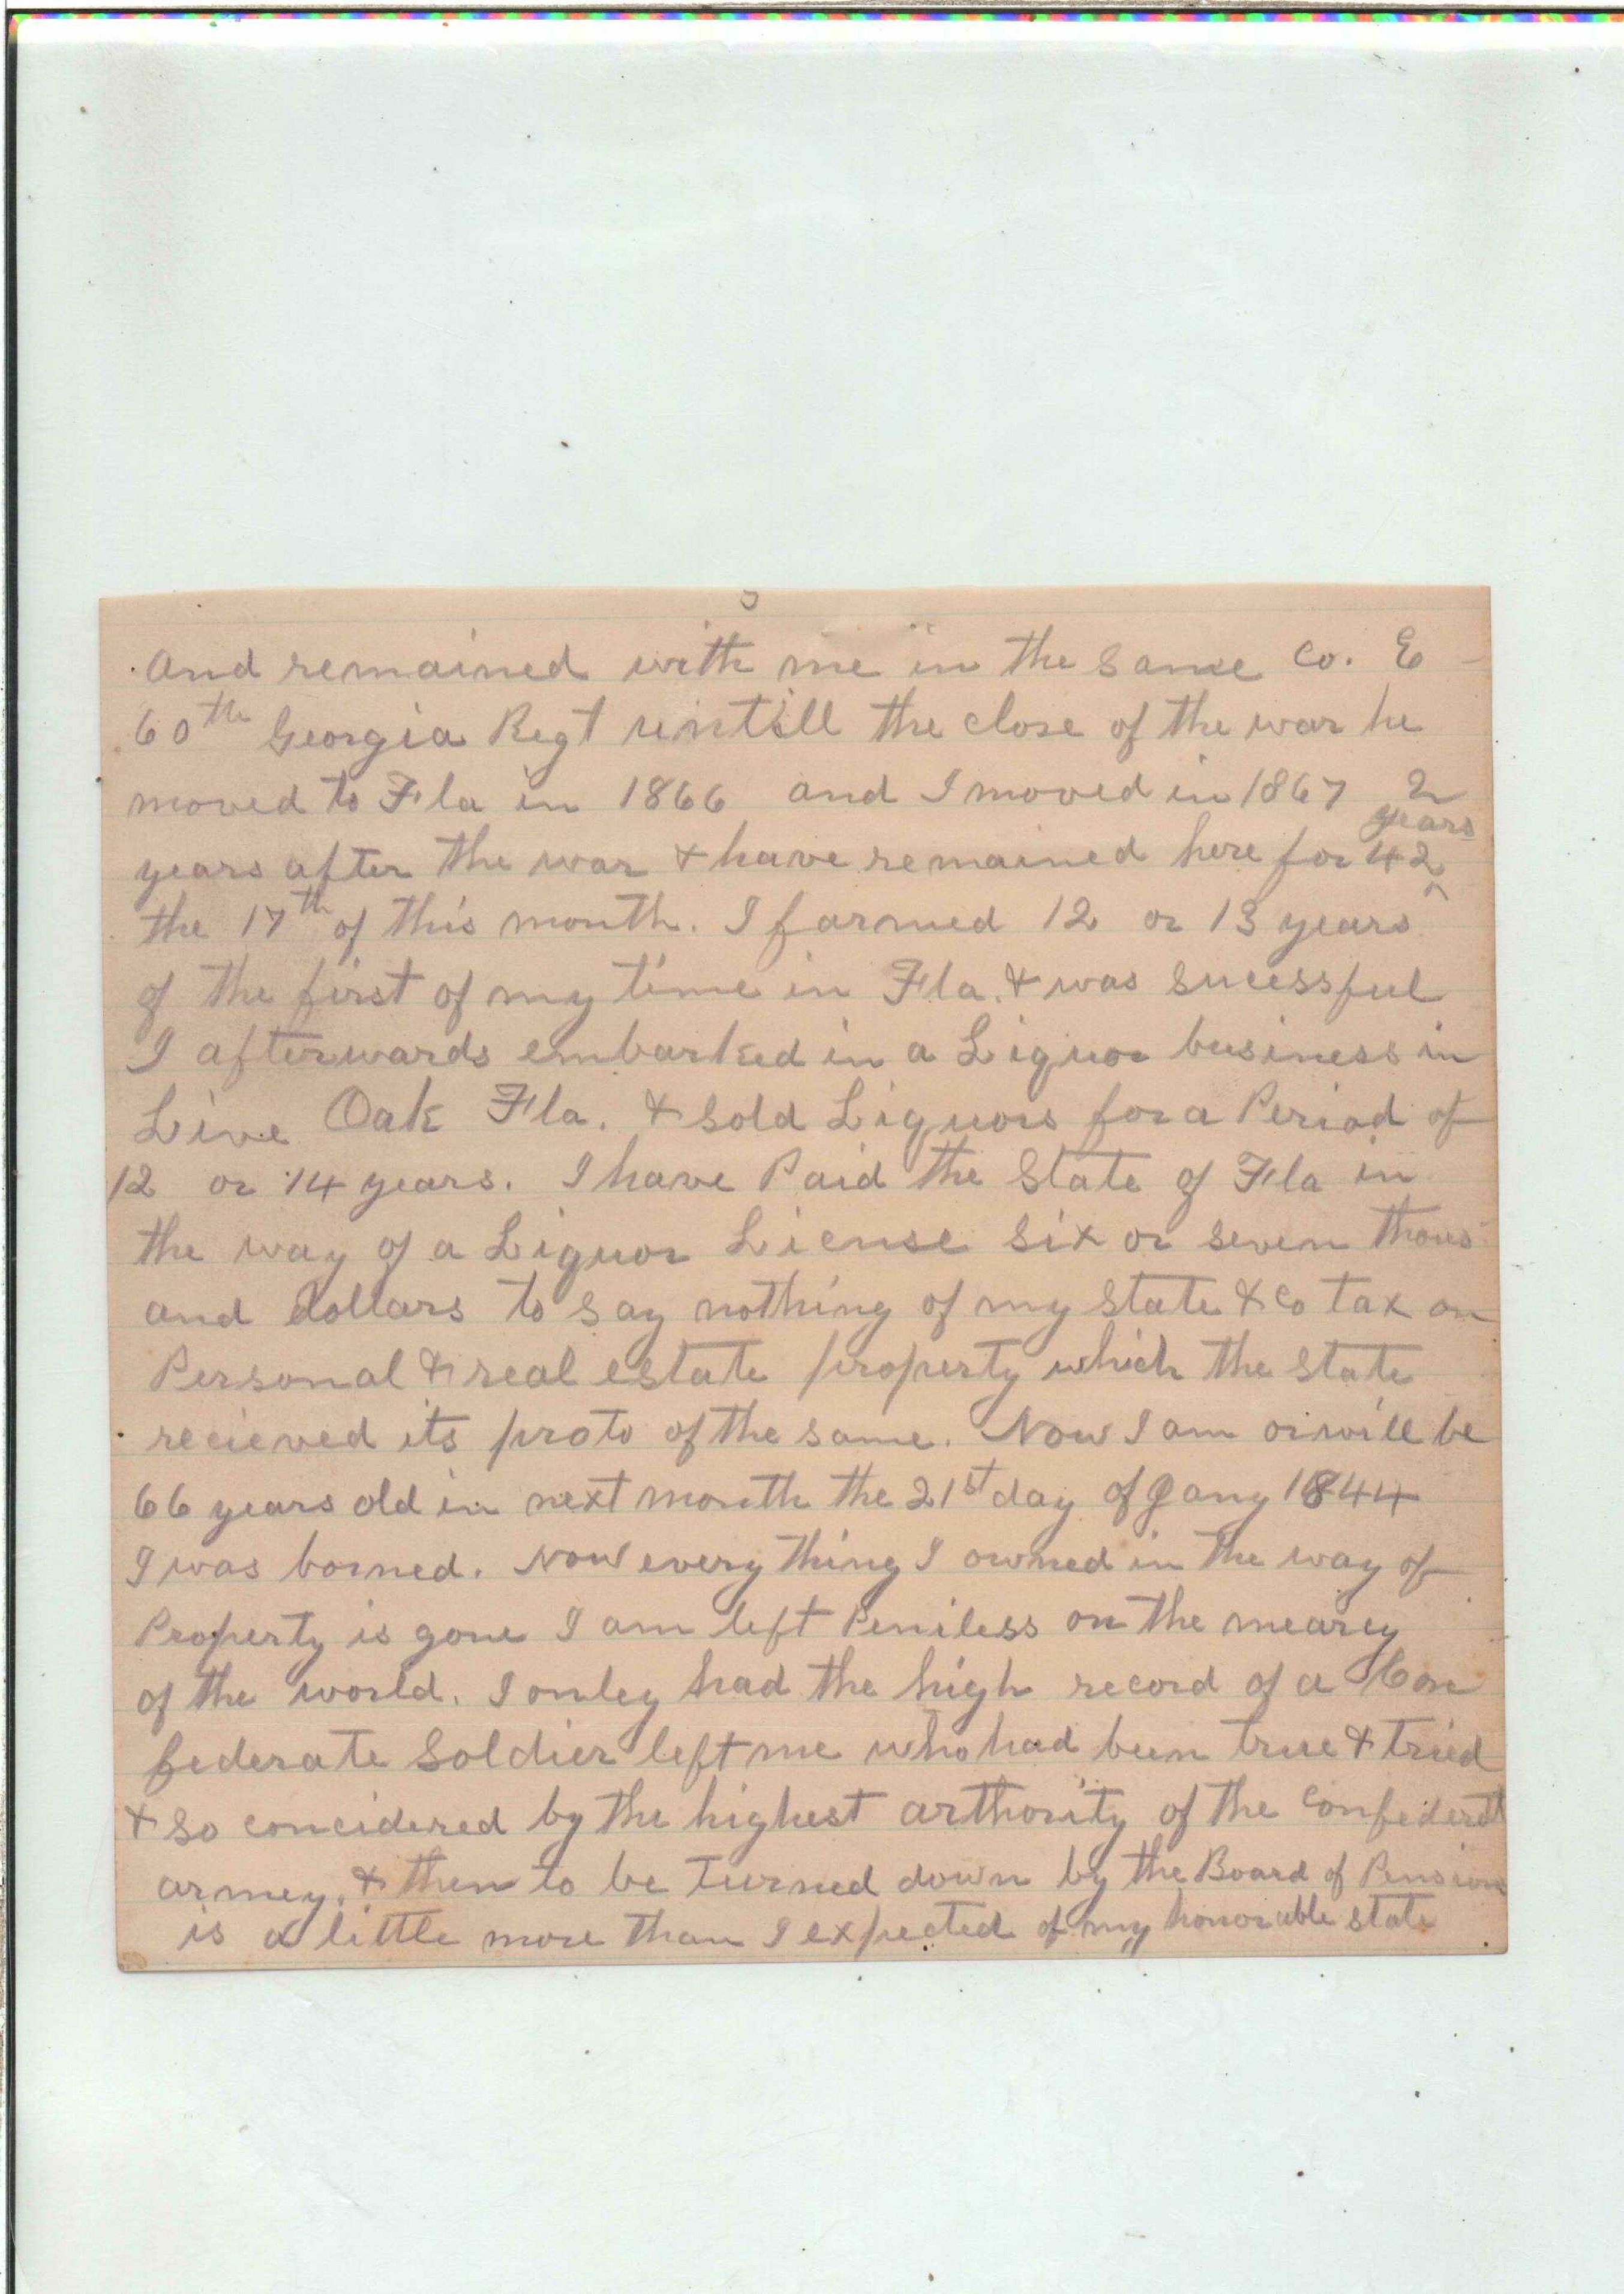 And remained with me in the same Co. E
60th Georgia Regt untill the close of the war he
moved to Fla in 1866 and I moved in 1867 2
years after the war & have remained here for 42 years
the 17th of this month. I farmed 12 or 13 years
of the first of my time in Fla. & was sucessful
I afterwards embarked in a Liquor business in
Live Oak Fla. & sold Liquors for a Period of
12 or 14 years. I have Paid the State of Fla in
the way of a Liquor License six or seven thous
and dollars to say nothing of my state & co tax on
Personal & real estate property which the state
recieved its proto of the same. Now I am or will be
66 years old in next month the 21st day of Jany 1844
I was borned. Now every thing I owned in the way of
Property is gone I am left Peniless on the mearcy
of the world. I onley had the high record of a Con
federate Soldier left me who had been true & tried
& so concidered by the highest arthority of the Confederat
armey, & then to be turned down by the Board of Pension
is a little more than I expected of my honorable state